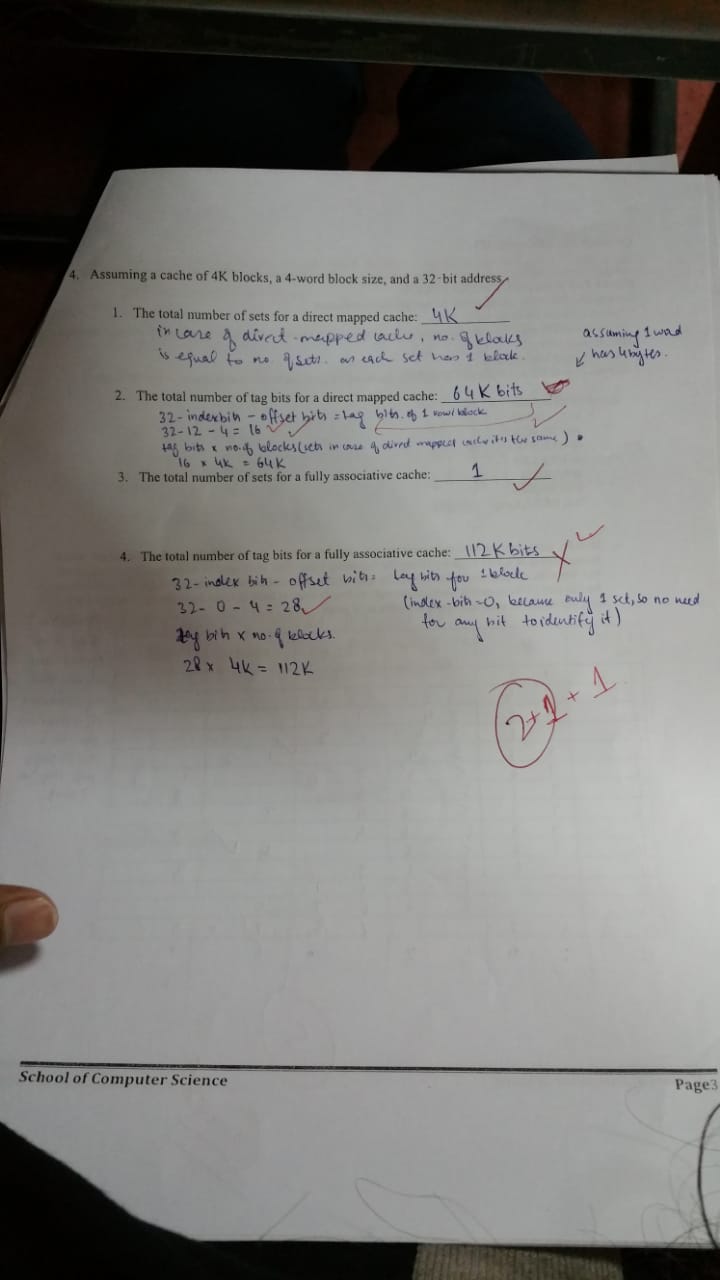 4. Assuming a cache of 4K blocks, a 4-word block size, and a 32-bit address,
1. The total number of sets for a direct mapped cache: 4K
in case of direct-mapped cache, no. of blocks
is equal to no of sets. as each set has 1 block.
assuming 1 word
has 4 bytes.
2. The total number of tag bits for a direct mapped cache: 64K bits
32 - index bits - offset bits = tag bits. of 1 row/block
32-12 - 4 = 16
tag bits x no. of blocks (sets in case of direct mapped cache its the same).
16 x 4K = 64K
3. The total number of sets for a fully associative cache: 1
4. The total number of tag bits for a fully associative cache: 112K bits
32- index bits - offset bits = tag bits for 1 block
32- 0 - 4 = 28
(index-bits=0, because only 1 set, so no need
for any bit to identify it)
tag bits x no. of blocks.
28 x 4K = 112K
2+1+1
School of Computer Science
Page3